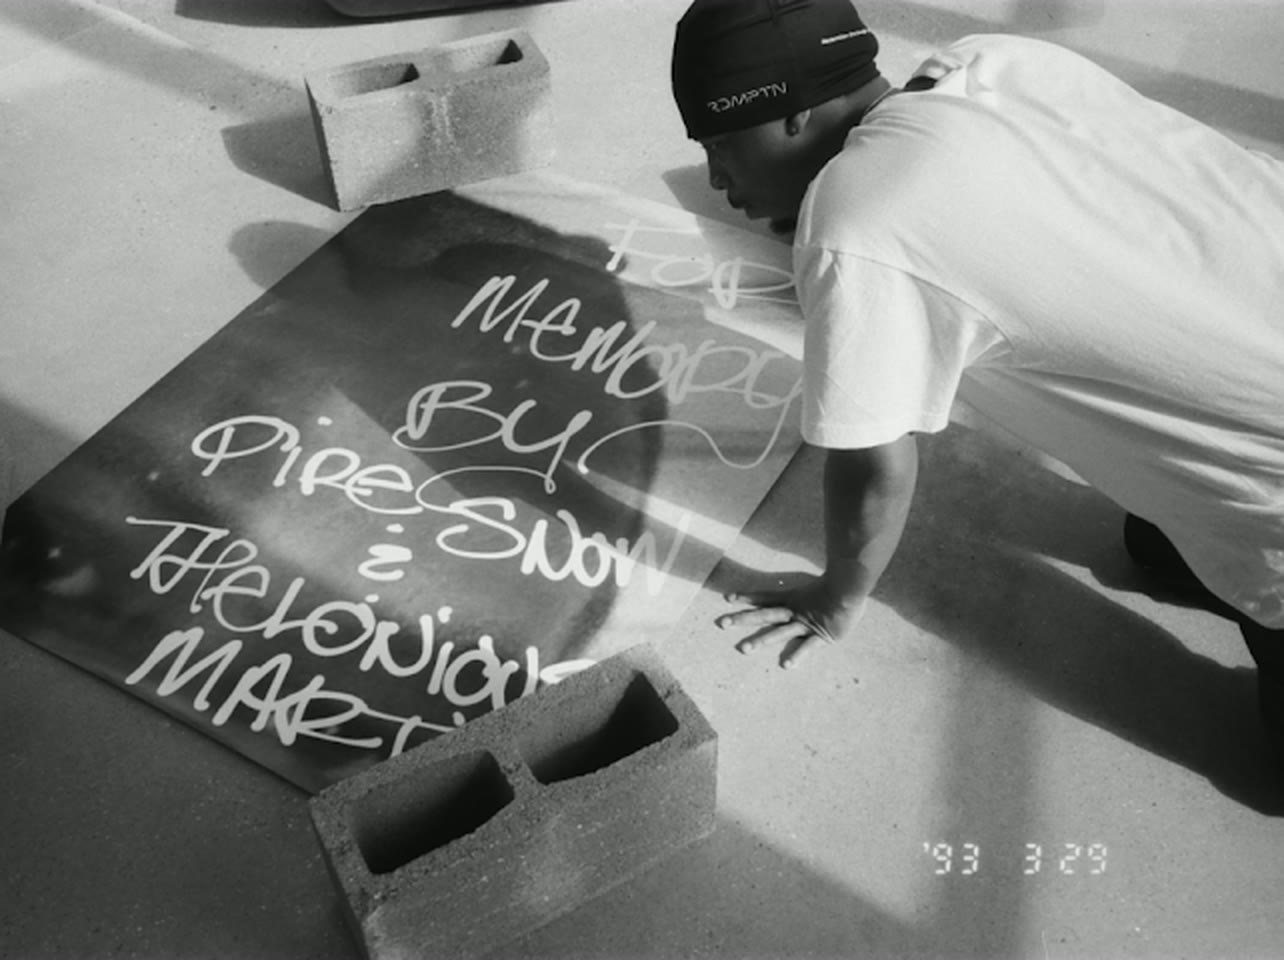 FOR
MEMORY
BY
PiRE SNOW
&
THELONIOUS
MARTI
'93 3 29